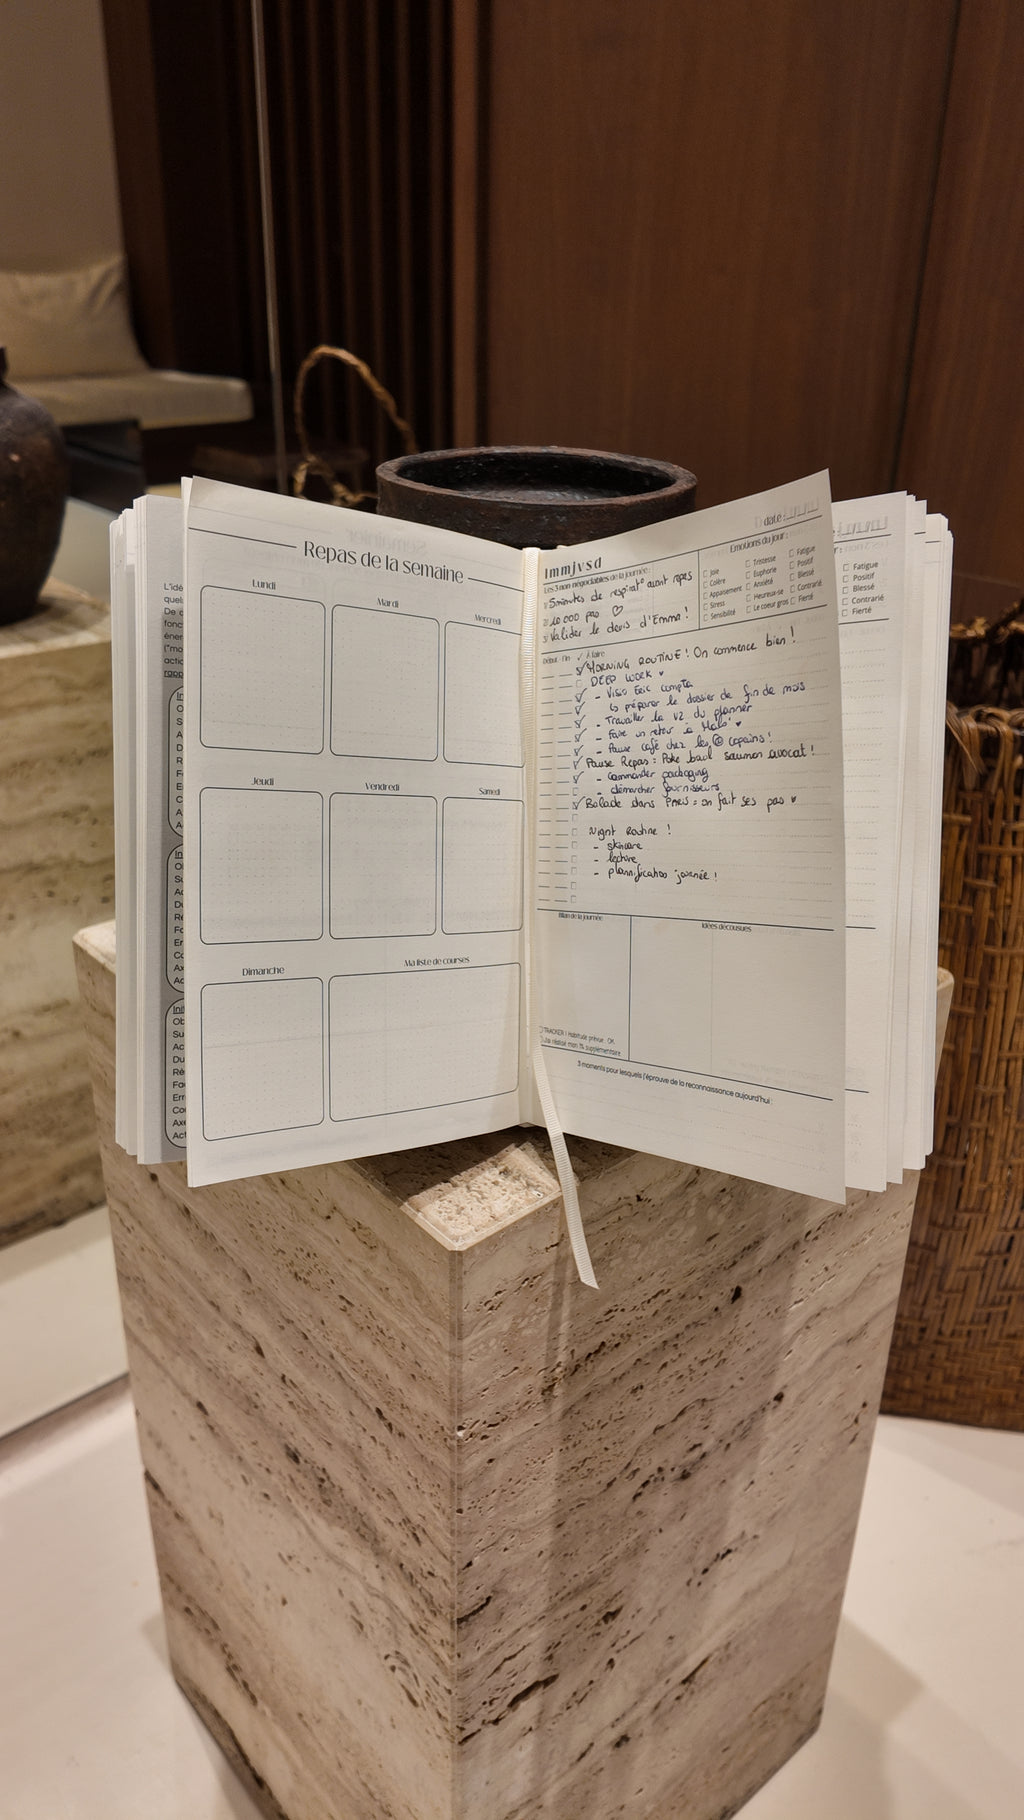 Repas de la semaine
Lundi
Mardi
Mercredi
Jeudi
Vendredi
Samedi
Dimanche
Ma liste de courses
L'idé
quel
De
fonc
éner
("mo
actio
rapp
date :
lmmjvsd
Les 3 non-négociables de la journée :
1) 5 minutes de respirat° avant repas
2) 10 000 pas ♡
3) Valider le devis d'Emma !
Emotions du jour :
Joie
Colère
Apaisement
Stress
Sensibilité
Tristesse
Euphorie
Anxiété
Heureux-se
Le coeur gros
Fatigue
Positif
Blessé
Contrarié
Fierté
Début Fin ✓ À faire
MORNING ROUTINE ! On commence bien !
DEEP WORK ♥
- Visio Eric compta
↳ préparer le dossier de fin de mois
- Travailler la V2 du planner
- Faire un retour à Malo ♥
- Pause café chez les copains !
Pause Repas : Poke bowl saumon avocat !
- Commander packaging
- démarcher fournisseurs
Balade dans Paris = on fait ses pas ♥
Night Routine !
- skincare
- lecture
- plannification journée !
Bilan de la journée
Idées décousues
TRACKER | Habitude prévue : OK
J'ai réalisé mon 1% supplémentaire
3 moments pour lesquels j'éprouve de la reconnaissance aujourd'hui :
Fatigue
Positif
Blessé
Contrarié
Fierté